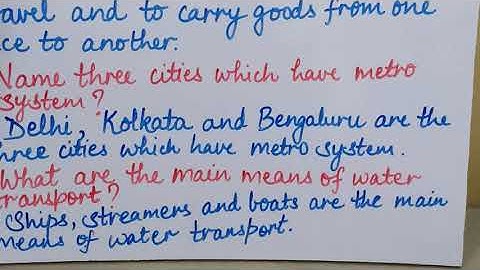 avel and to carry goods from one
ce to another.
Name three cities which have metro
system?
Delhi, Kolkata and Bengaluru are the
three cities which have metro system.
What are the main means of water
transport?
Ships, streamers and boats are the main
means of water transport.